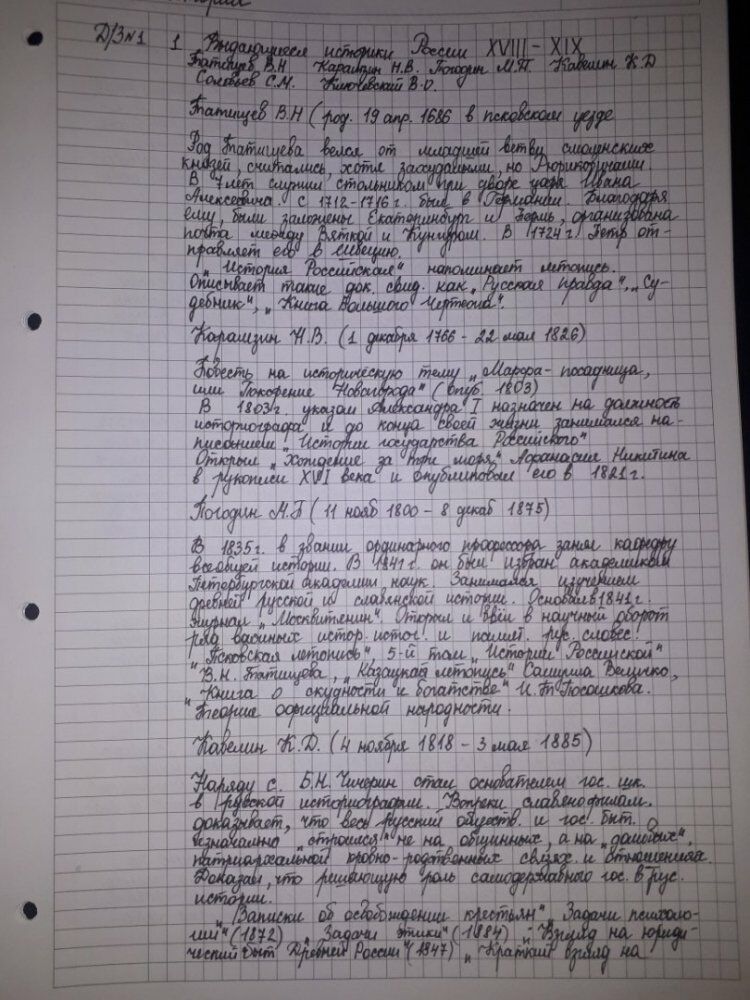 Д/З №1 1 Выдающиеся историки России XVIII – XIX
Татищев В.Н Карамзин Н.В. Погодин М.П. Кавелин К.Д
Соловьёв С.М. Ключевский В.О.
Татищев В.Н (род. 19 апр. 1686 в псковском уезде
Род Татищева велся от младшей ветви смоленских
князей, считались, хотя захудалыми, но Рюриковичами.
В 7лет служил стольником при дворе царя Ивана
Алексеевича. с 1712-1716г. был в Германии. Благодаря
ему, были заложены Екатеринбург и Пермь, организована
почта между Вяткой и Кунгуром. В 1724г. Петр от-
правляет его в Швецию.
„История Российская" напоминает летопись.
Описывает такие док. свид. как „Русская правда", „Су-
дебник", „Книга Большого Чертежа".
Карамзин Н.В. (1 декабря 1766 - 22 мая 1826)
Повесть на историческую тему „Марфа-посадница,
или Покорение Новагорода" (опуб. 1803)
В 1803г. указом Александра I назначен на должность
историографа и до конца своей жизни занимался на-
писанием „Истории государства Российского"
Открыл „Хождение за три моря" Афанасия Никитина
в рукописи XVI века и опубликовал его в 1821г.
Погодин М.П (11 нояб 1800 – 8 декаб 1875)
В 1835г. в звании ординарного профессора занял кафедру
всеобщей истории. В 1841г. он был избран академиком
Петербургской академии наук. Занимался изучением
древней русской и славянской истории. Основал в 1841г.
журнал „Москвитянин". Открыл и ввёл в научный оборот
ряд важных истор. источ. и памят. рус. словес.
„Псковская летопись", 5-й том „Истории Российской"
В.Н. Татищева, „Казацкая летопись" Самуила Величко,
„Книга о скудности и богатстве" И.Т. Посошкова.
Теория официальной народности.
Кавелин К.Д. (4 ноября 1818 – 3 мая 1885)
Наряду с. Б.Н. Чичерин стал основателем гос. шк.
в русской историографии. Вопреки славенофилам.
доказывает, что весь русский обществ. и гос. быт.
изначально „строился" не на общинных, а на „домовых",
патриархальной кровно-родственных связях и отношениях.
Доказал, что решающую роль самодержавного гос. в рус.
истории.
„Записки об освобождении крестьян" „Задачи психоло-
гии" (1872) „Задачи этики" (1884) „Взгляд на юриди-
ческий быт Древней России" (1847) „Краткий взгляд на